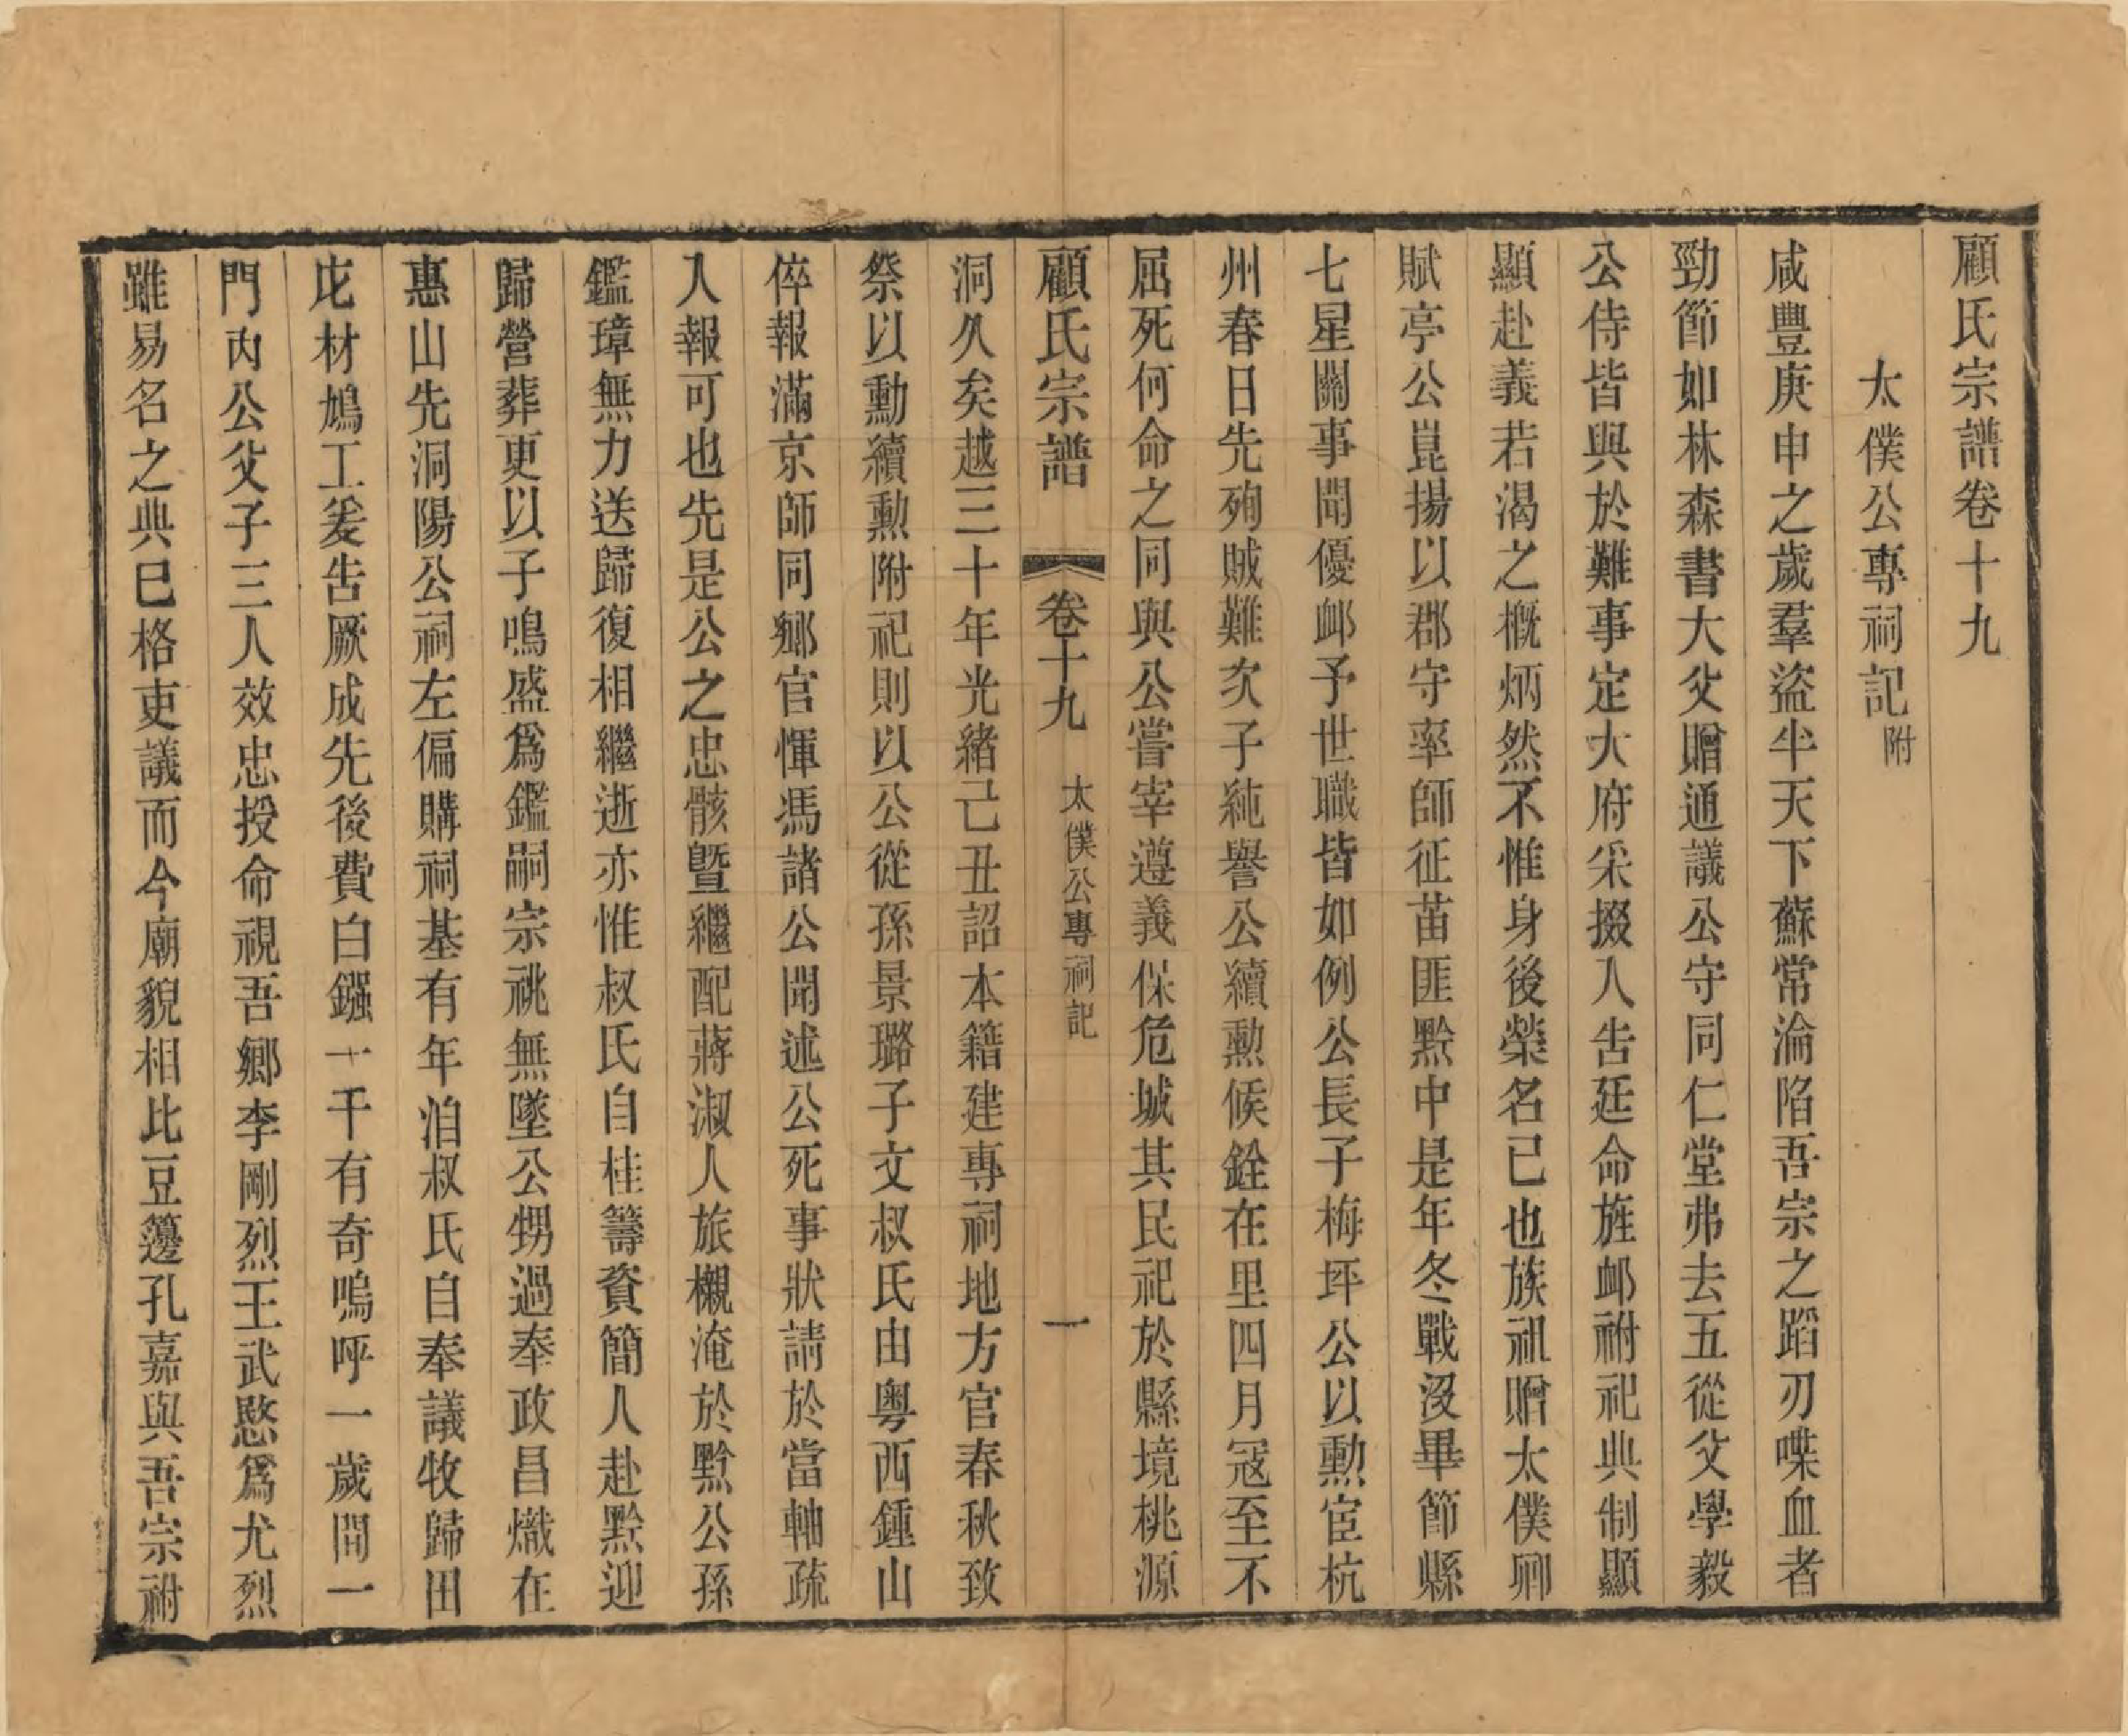 顧氏宗譜卷十九
太僕公專祠記附
咸豐庚申之歲羣盜半天下蘇常淪陷吾宗之蹈刃喋血者
勁節如林森書大父贈通議公守同仁堂弗去五從父學毅
公侍皆與於難事定大府采掇入告廷命旌卹祔祀典制顯
顯赴義若渴之概炳然不惟身後榮名已也族祖贈太僕卿
賦亭公崑揚以郡守率師征苗匪黔中是年冬戰沒畢節縣
七星關事聞優卹予世職皆如例公長子梅坪公以勳宦杭
州春日先殉賊難次子純譽公續勳候銓在里四月寇至不
屈死何命之同與公嘗宰遵義保危城其民祀於縣境桃源
顧氏宗譜 卷十九 太僕公專祠記 一
洞久矣越三十年光緒己丑詔本籍建專祠地方官春秋致
祭以勳續勳附祀則以公從孫景璐子文叔氏由粵西鍾山
倅報滿京師同鄉官惲馮諸公聞述公死事狀請於當軸疏
入報可也先是公之忠骸曁繼配蔣淑人旅櫬淹於黔公孫
鑑璋無力送歸復相繼逝亦惟叔氏自桂籌資簡人赴黔迎
歸營葬更以子鳴盛爲鑑嗣宗祧無墜公甥過奉政昌熾在
惠山先洞陽公祠左偏購祠基有年洎叔氏自奉議牧歸田
庀材鳩工爰告厥成先後費白鏹一千有奇嗚呼一歲間一
門內公父子三人效忠授命視吾鄉李剛烈王武愍爲尤烈
雖易名之典已格吏議而今廟貌相比豆籩孔嘉與吾宗祔